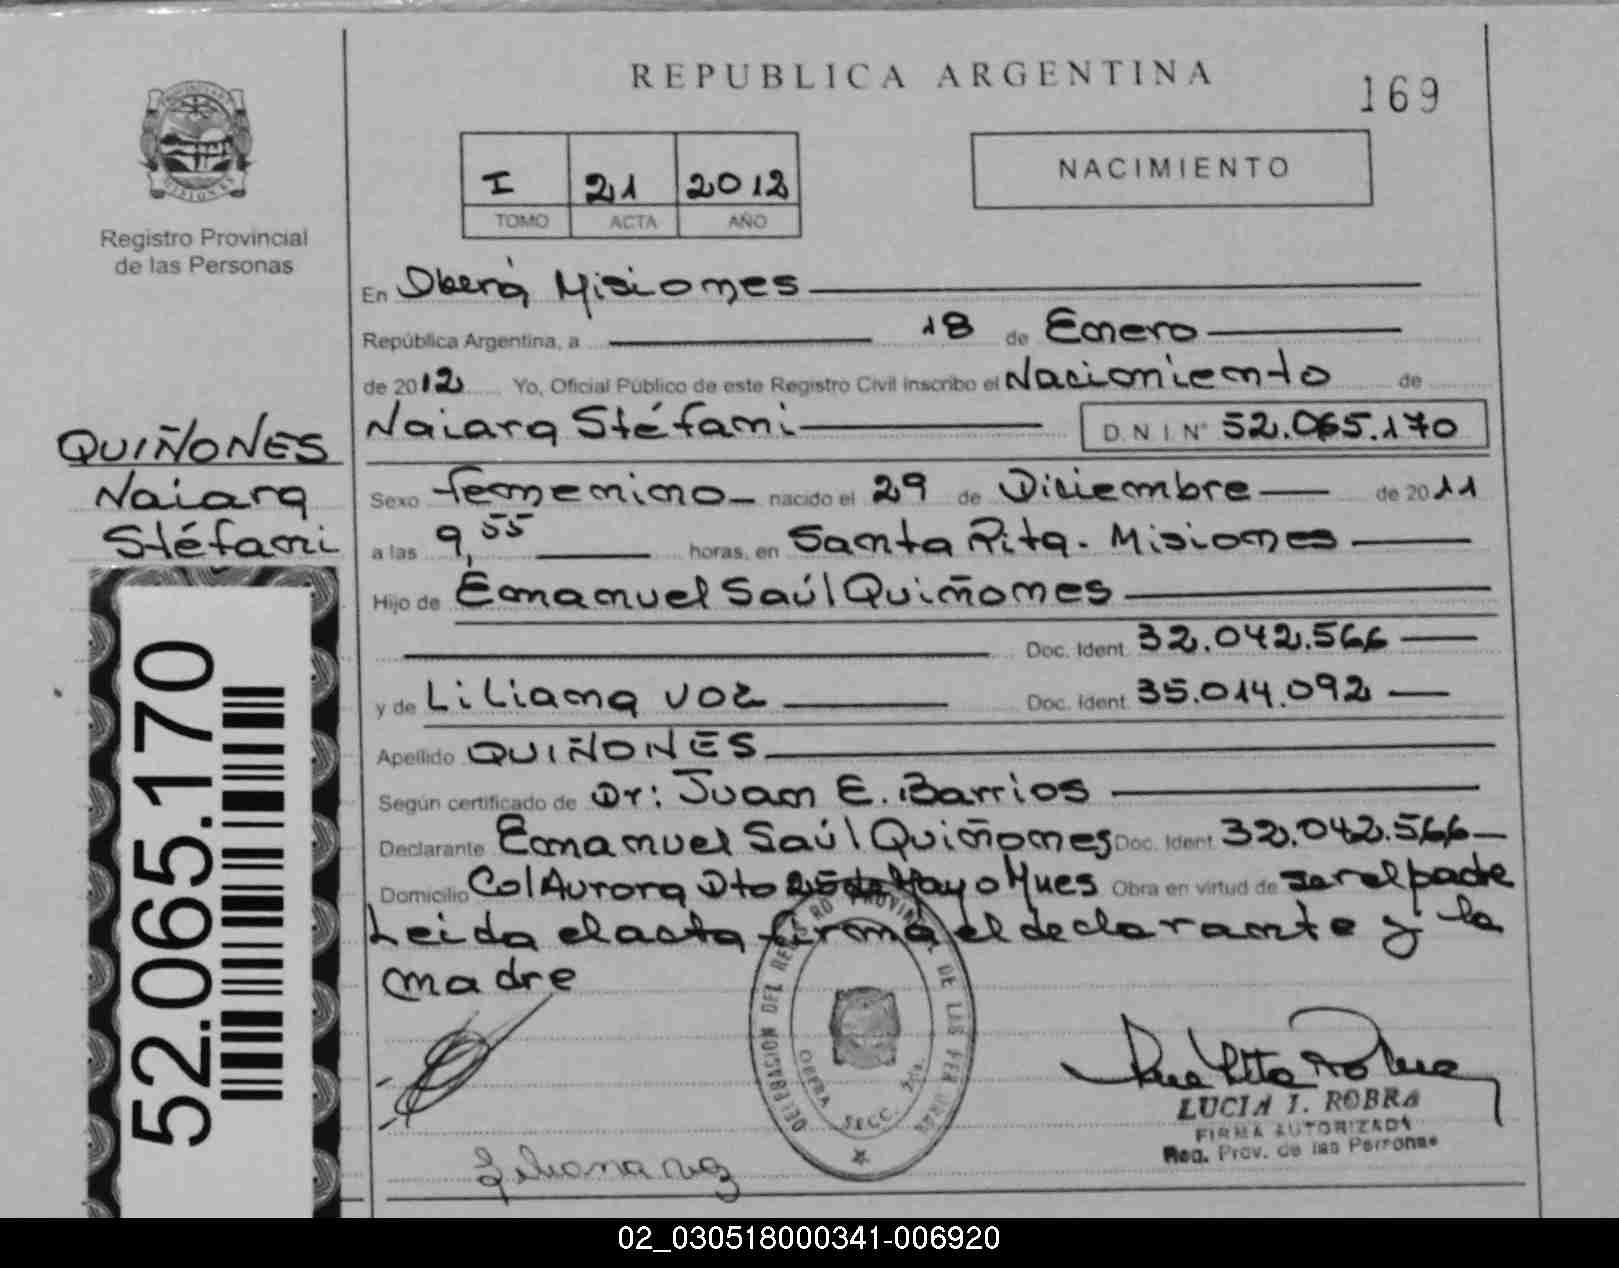 REPUBLICA ARGENTINA
169
I 21 2012
TOMO ACTA AÑO
NACIMIENTO
Registro Provincial
de las Personas
En Oberá Misiones
República Argentina, a 18 de Enero
de 2012 Yo, Oficial Público de este Registro Civil inscribo el Nacimiento de
Naiara Stéfani D.N.I. N° 52.065.170
QUIÑONES
Naiara
Stéfani
Sexo femenino nacido el 29 de Diciembre de 2011
a las 9,55 horas, en Santa Rita. Misiones
Hijo de Emanuel Saúl Quiñones
Doc. Ident. 32.042.566
y de Liliana Voz Doc. Ident. 35.014.092
Apellido QUIÑONES
Según certificado de Dr: Juan E. Barrios
Declarante Emanuel Saúl Quiñones Doc. Ident. 32.042.566
Domicilio Col Aurora Dto 25 de Mayo Mnes Obra en virtud de ser el padre
Leida el acta firma el declarante y la
madre
52.065.170
DELEGACION DEL REGISTRO PROVINCIAL DE LAS PERSONAS
OBERA SECC. 2da.
LUCIA I. ROBRA
FIRMA AUTORIZADA
Reg. Prov. de las Personas
02_030518000341-006920